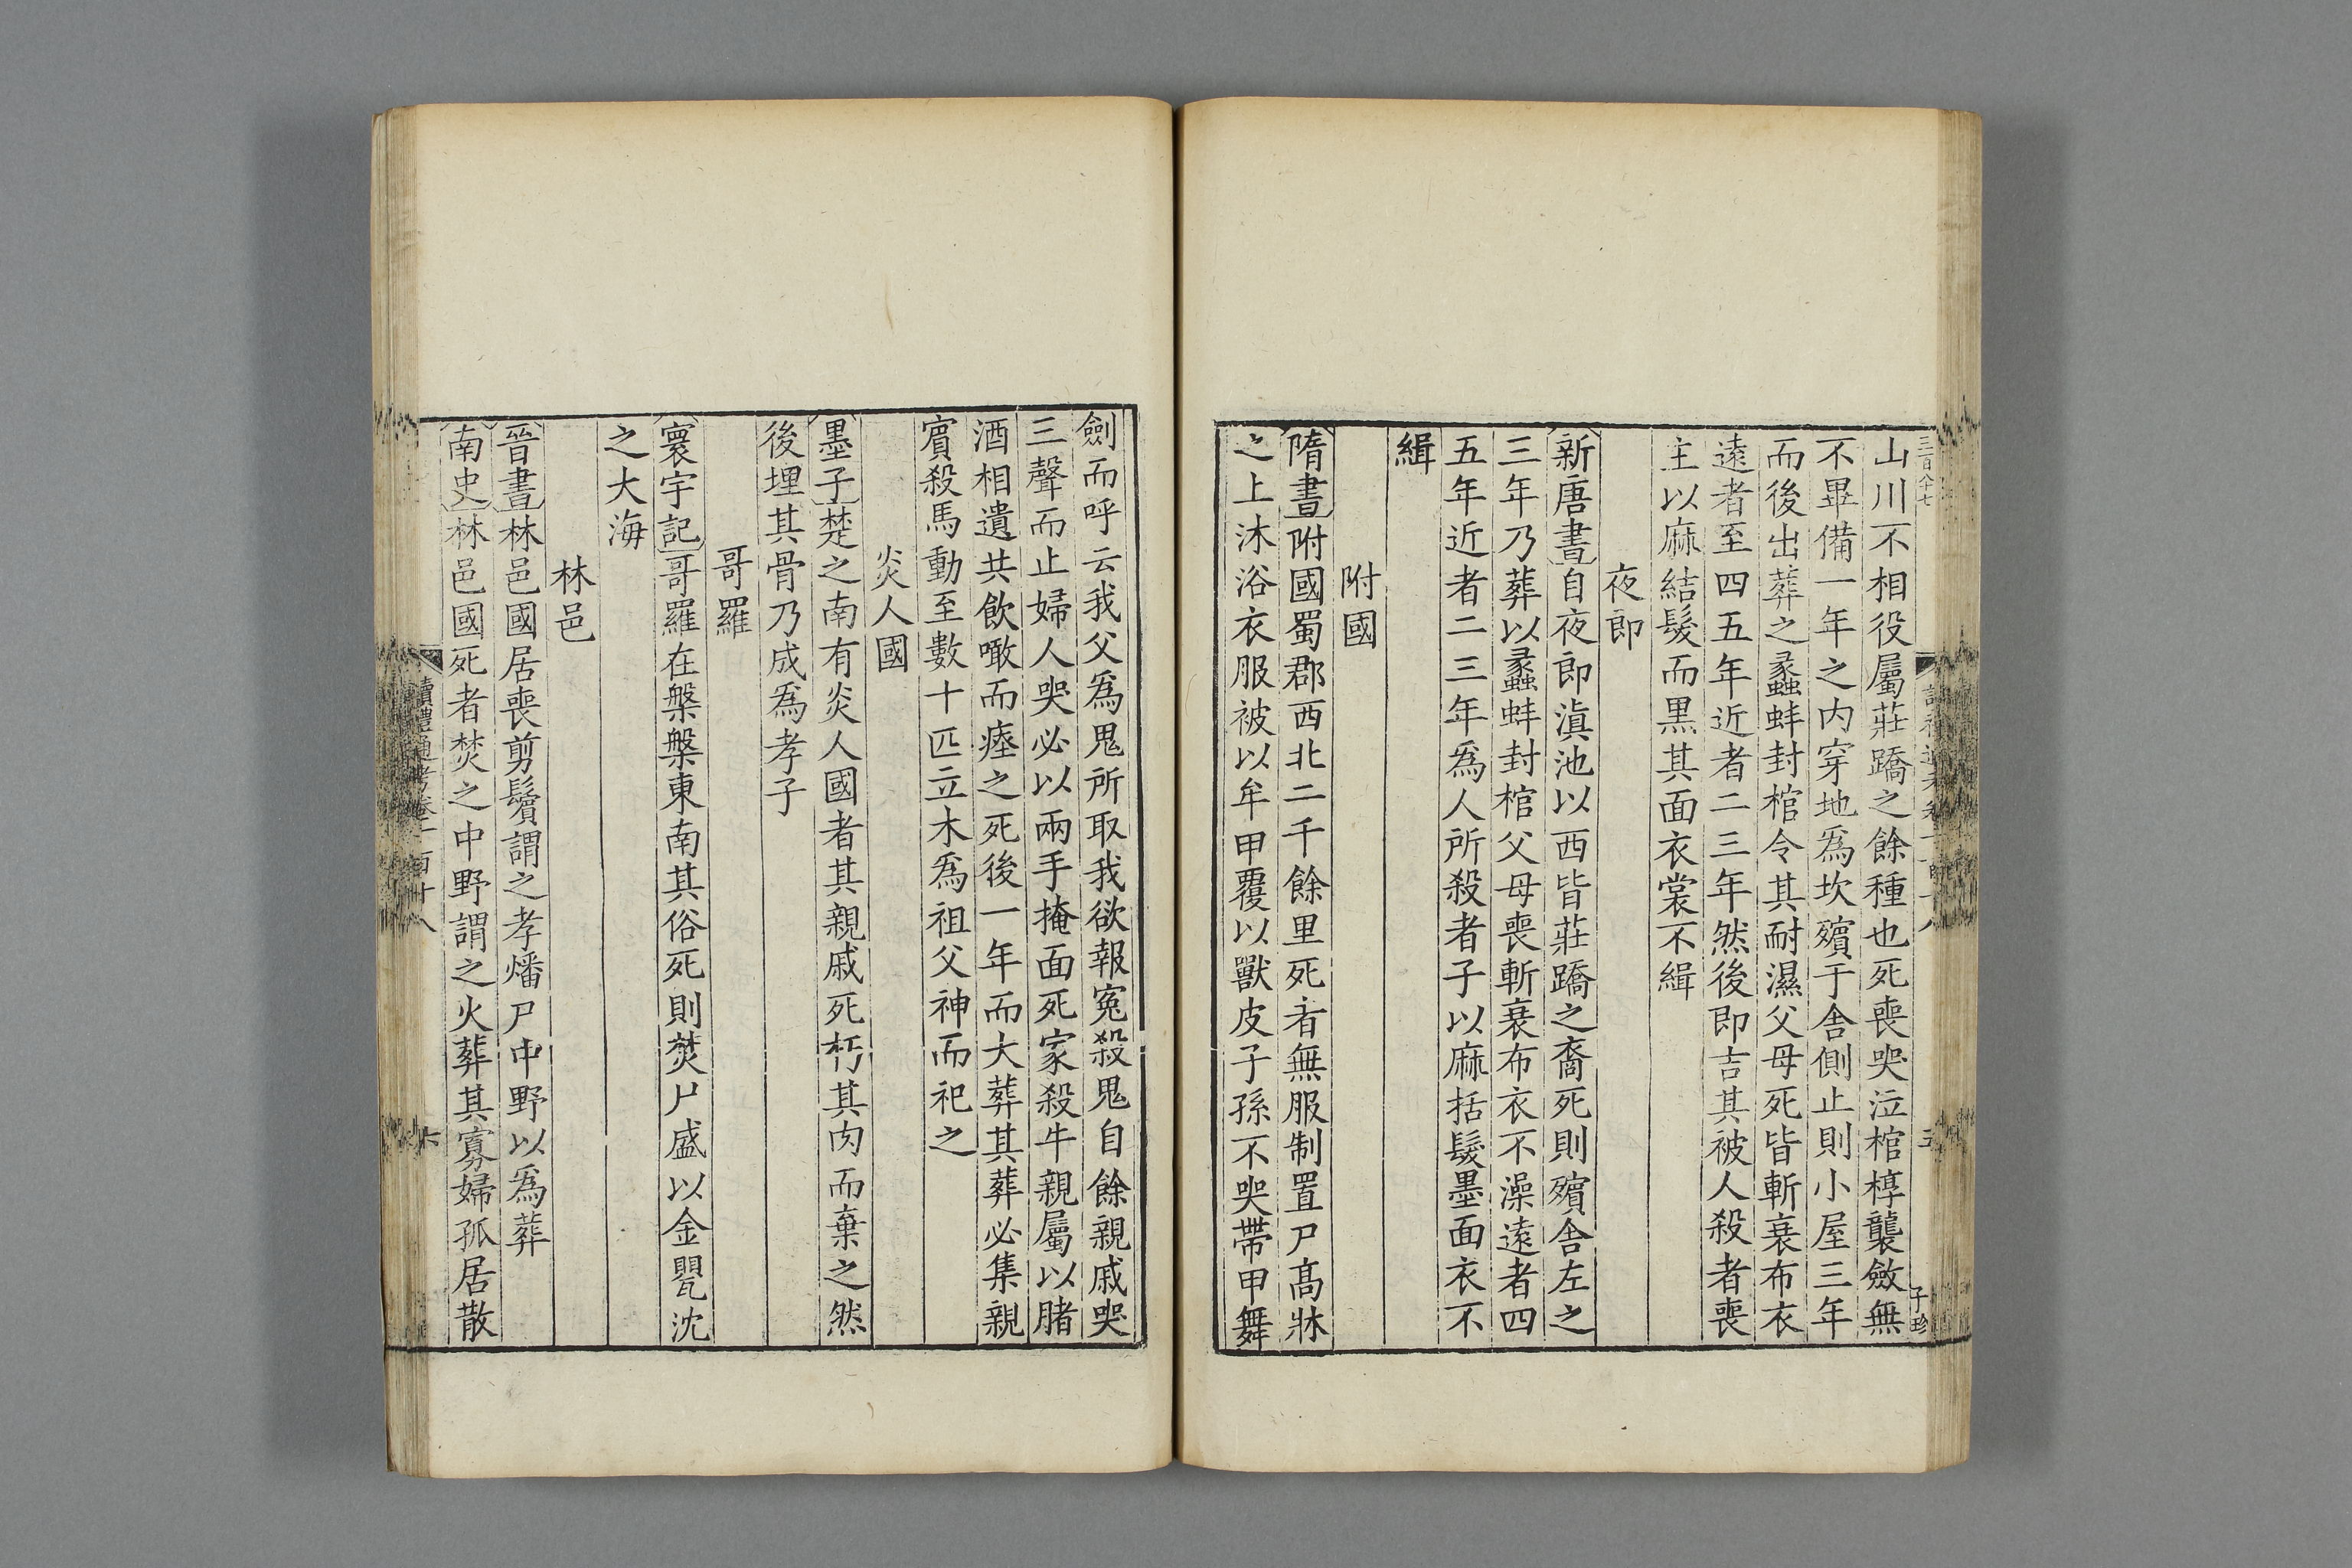 三百八十七
山川不相役屬莊蹻之餘種也死喪哭泣棺椁襲斂無
不畢備一年之内穿地爲坎殯于舍側止則小屋三年
而後出葬之蠡蚌封棺令其耐濕父母死皆斬衰布衣
遠者至四五年近者二三年然後即吉其被人殺者喪
主以麻結髮而黑其面衣裳不緝
夜郎
新唐書自夜郎滇池以西皆莊蹻之裔死則殯舍左之
三年乃葬以蠡蚌封棺父母喪斬衰布衣不澡遠者四
五年近者二三年爲人所殺者子以麻括髮墨面衣不
緝
附國
隋書附國蜀郡西北二千餘里死者無服制置尸高牀
之上沐浴衣服被以牟甲覆以獸皮子孫不哭帶甲舞
五
子珍
劍而呼云我父爲鬼所取我欲報寃殺鬼自餘親戚哭
三聲而止婦人哭必以兩手掩面死家殺牛親屬以賭
酒相遺共飲噉而瘞之死後一年而大葬其葬必集親
賔殺馬動至數十匹立木爲祖父神而祀之
炎人國
墨子楚之南有炎人國者其親戚死朽其肉而棄之然
後埋其骨乃成爲孝子
哥羅
寰宇記哥羅在槃槃東南其俗死則焚尸盛以金甖沈
之大海
林邑
晉書林邑國居喪剪鬢謂之孝燔尸中野以爲葬
南史林邑國死者焚之中野謂之火葬其寡婦孤居散
讀禮通考卷一百十八
六